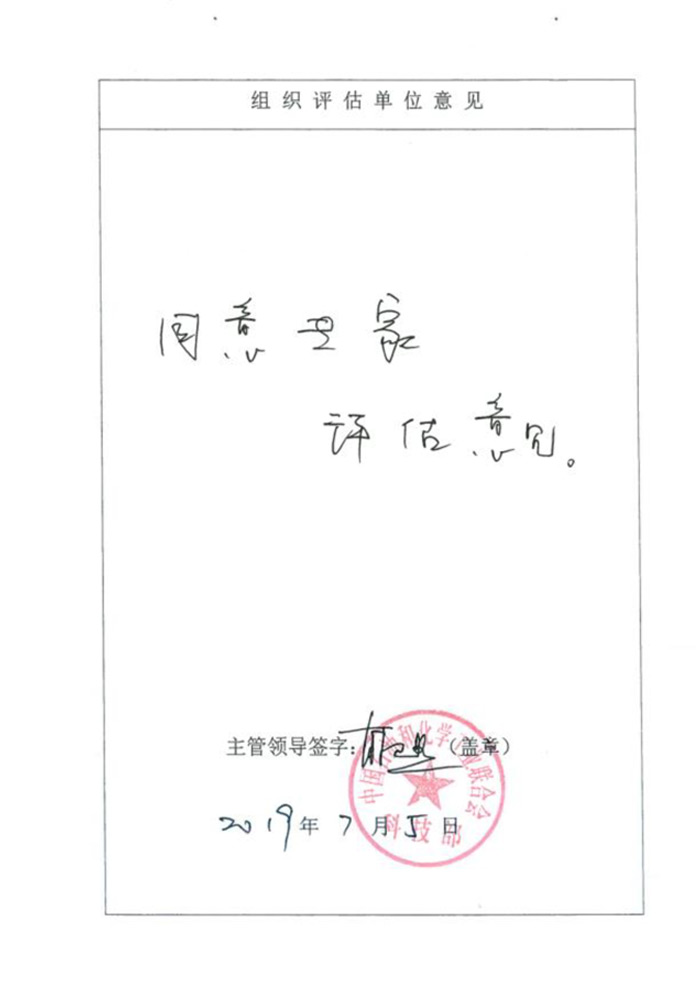 组织评估单位意见
同意专家
评估意见。
主管领导签字：（盖章）
中国石油和化学工业联合会
科技部
2019年7月5日